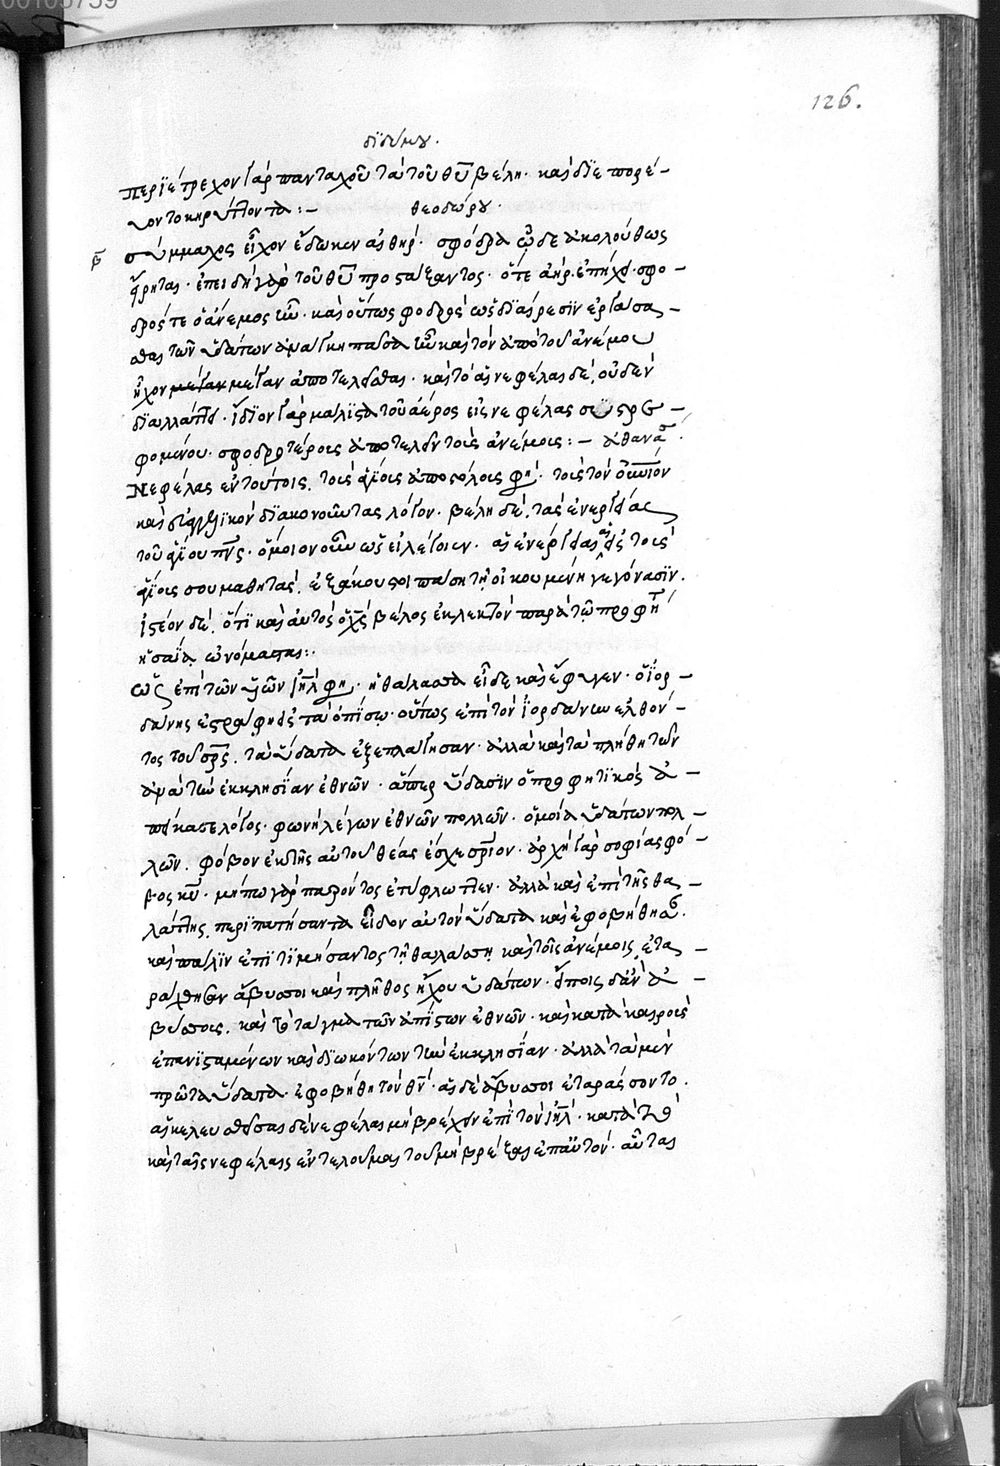 00105759
126.
διδύμου.
Περιέτρεχον γὰρ πανταχοῦ τὰ τοῦ θῡ βέλη. καὶ διεπορεύ-
οντο κηρύττοντα :- θεοδώρου.
β σύμμαχος ἦχον ἔδωκεν αἰθήρ. σφόδρα ὧδε ἀκολούθως
εἴρηται. ἐπειδὴ γὰρ τοῦ θῡ προστάξαντος. ὅτε ἀὴρ ἐπήχει σφο-
δρός τε ὁ ἄνεμος ἦν. καὶ οὕτως σφοδρὸς ὡς διαίρεσιν ἐργάσα-
σθαι τῶν ὑδάτων ἀνάγκη πᾶσα ἦν καὶ τὸν ἀπὸ τοῦ ἀνέμου
ἦχον μέγαν μέγαν ἀποτελεῖσθαι. καὶ τὸ αἱ νεφέλαι δὲ, οὐδὲν
διαλλάττει. ἴδιον γὰρ μάλιστα τοῦ ἀέρος εἰς νεφέλας συστρε-
φομένου. σφοδροτέροις ἀποτελεῖν τοῖς ἀνέμοις :- ἀθανα.
Νεφέλας ἐν τούτοις, τοὺς ἁγίοις ἀποστόλοις φη. τοῖς τὸν
καὶ διακονοῦντας λόγον. βέλη δὲ, τὰς ἐνεργείας
τοῦ ἁγίου πνς. ὅμοιον οὖν ὡς εἰ λέγοιεν. αἱ ἐνέργειαι αἱ ἐν τοῖς
ἁγίοις σου μαθηταῖς, ἐξάκουστοι πάσῃ τῇ οἰκουμένῃ γεγόνασιν.
ἰστέον δὲ, ὅτι καὶ αὐτὸς ὁ χς βέλος ἐκλεκτὸν παρὰ τῷ προφήτῃ
ἡσαΐᾳ ὠνόμασται :.
ὡς ἐπὶ τῶν υἱῶν ιηλ φη. ἡ θάλασσα εἶδε καὶ ἔφυγεν. ὁ ἰορ-
δάνης ἐστράφη εἰς τὰ ὀπίσω. οὕτως ἐπὶ τὸν ἰορδάνην ἐλθόν-
τος τοῦ σρς, τὰ ὕδατα ἐξεπλάγησαν. ἀλλὰ καὶ τὰ πλήθη τῶν
ἀνὰ τὴν ἐκκλησίαν ἐθνῶν. ἅπερ ὕδασιν ὁ προφητικὸς ἀ-
πείκασε λόγος. φωνὴ λέγων ἐθνῶν πολλῶν. ὁμοία ὑδάτων πολ-
λῶν. φόβον ἐκ τῆς αὐτοῦ θέας ἔσχε σριον. ἀρχὴ γὰρ σοφίας φό-
βος κυ. μήπω γὰρ παρόντος ἐτύφλωττεν. ἀλλὰ καὶ ἐπὶ τῆς θα-
λάττης, περιπατήσαντα εἶδον αὐτὸν ὕδατα καὶ ἐφοβήθησαν.
καὶ πάλιν ἐπιτιμήσαντος τῇ θαλάσσῃ καὶ τοῖς ἀνέμοις, ἐτα-
ράχθησαν ἄβυσσοι καὶ πλῆθος ἤχου ὑδάτων. εἴποις δ᾽ ἂν ἀ-
βύσσοις, καὶ τὸ τάγμα τῶν ἀπίστων ἐθνῶν. καὶ κατὰ καιροὺς
ἐπανισταμένων καὶ διωκόντων τὴν ἐκκλησίαν. ἀλλὰ τὰ μὲν
πρῶτα ὕδατα. ἐφοβήθη τὸν θν. αἱ δὲ ἄβυσσοι ἐταράσσοντο.
αἱ κελευσθεῖσαι δὲ νεφέλαι μὴ βρέχειν ἐπὶ τὸν ιηλ. κατὰ τὸ
καὶ ταῖς νεφέλαις ἐντελοῦμαι τοῦ μὴ βρέξαι ἐπ᾽ αὐτόν. αὗται